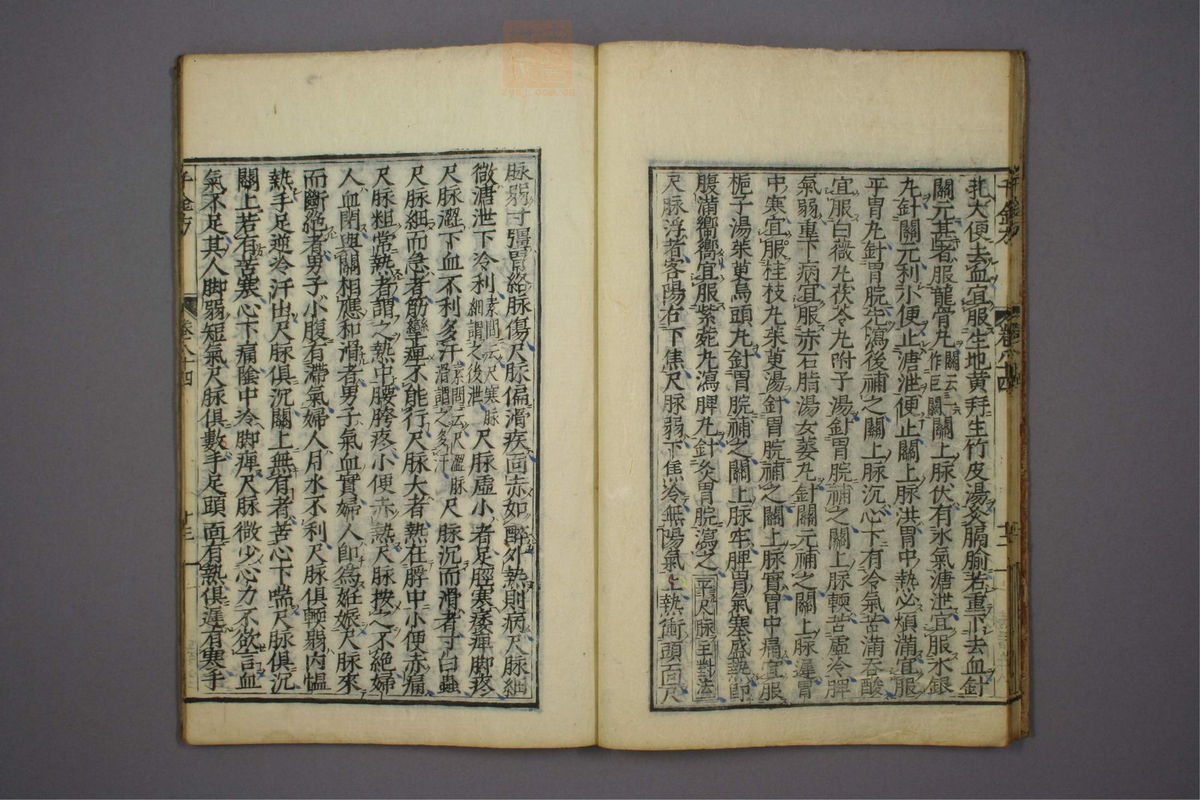 芤大便去血宜服生地黄拜生竹皮湯灸膈腧若重下去血針
關元甚者服龍骨丸關云三關作巨闕關上脉伏有水氣溏泄宜服水銀
丸針關元利小便止溏泄便止關上脉洪胃中熱必煩滿宜服
平胃丸針胃脘先瀉後補之關上脉沉心下有冷氣苦滿吞酸
宜服白薇丸茯苓丸附子湯針胃脘補之關上脉軟苦虛冷脾
氣弱重下病宜服赤石脂湯女萎丸針關元補之關上脉遲胃
中寒宜服桂枝丸茱萸湯針胃脘補之關上脉實胃中痛宜服
梔子湯茱萸烏頭丸針胃脘補之關上脉牢脾胃氣塞盛熱即
腹滿嚮嚮宜服紫菀丸瀉脾丸針灸胃脘瀉之平尺脉主對法
尺脉浮者客陽在下焦尺脉弱下焦冷無陽氣上熱衝頭面尺
脉弱寸彊胃絡脉傷尺脉偏滑疾面赤如醉外熱則病尺脉細
微溏泄下冷利素問云尺寒脉細謂之後泄尺脉虛小者足脛寒痿痺脚疼
尺脉澀下血不利多汗素問云尺澀脉滑謂之多汗尺脉沉而滑者寸白蟲
尺脉細而急者筋攣痺不能行尺脉大者熱在脬中小便赤痛
尺脉粗常熱者謂之熱中腰胯疼小便赤熱尺脉按之不絶婦
人血閉與關相應和滑者男子氣血實婦人即爲妊娠尺脉來
而斷絶者男子小腹有滯氣婦人月水不利尺脉俱軟弱内愠
熱手足逆冷汗出尺脉俱沉關上無有者苦心下喘尺脉俱沉
關上若有苦寒心下痛陰中冷脚痺尺脉微少心力不欲言血
氣不足其人脚弱短氣尺脉俱數手足頭面有熱俱遲有寒手
千金方 卷八十四 廿三